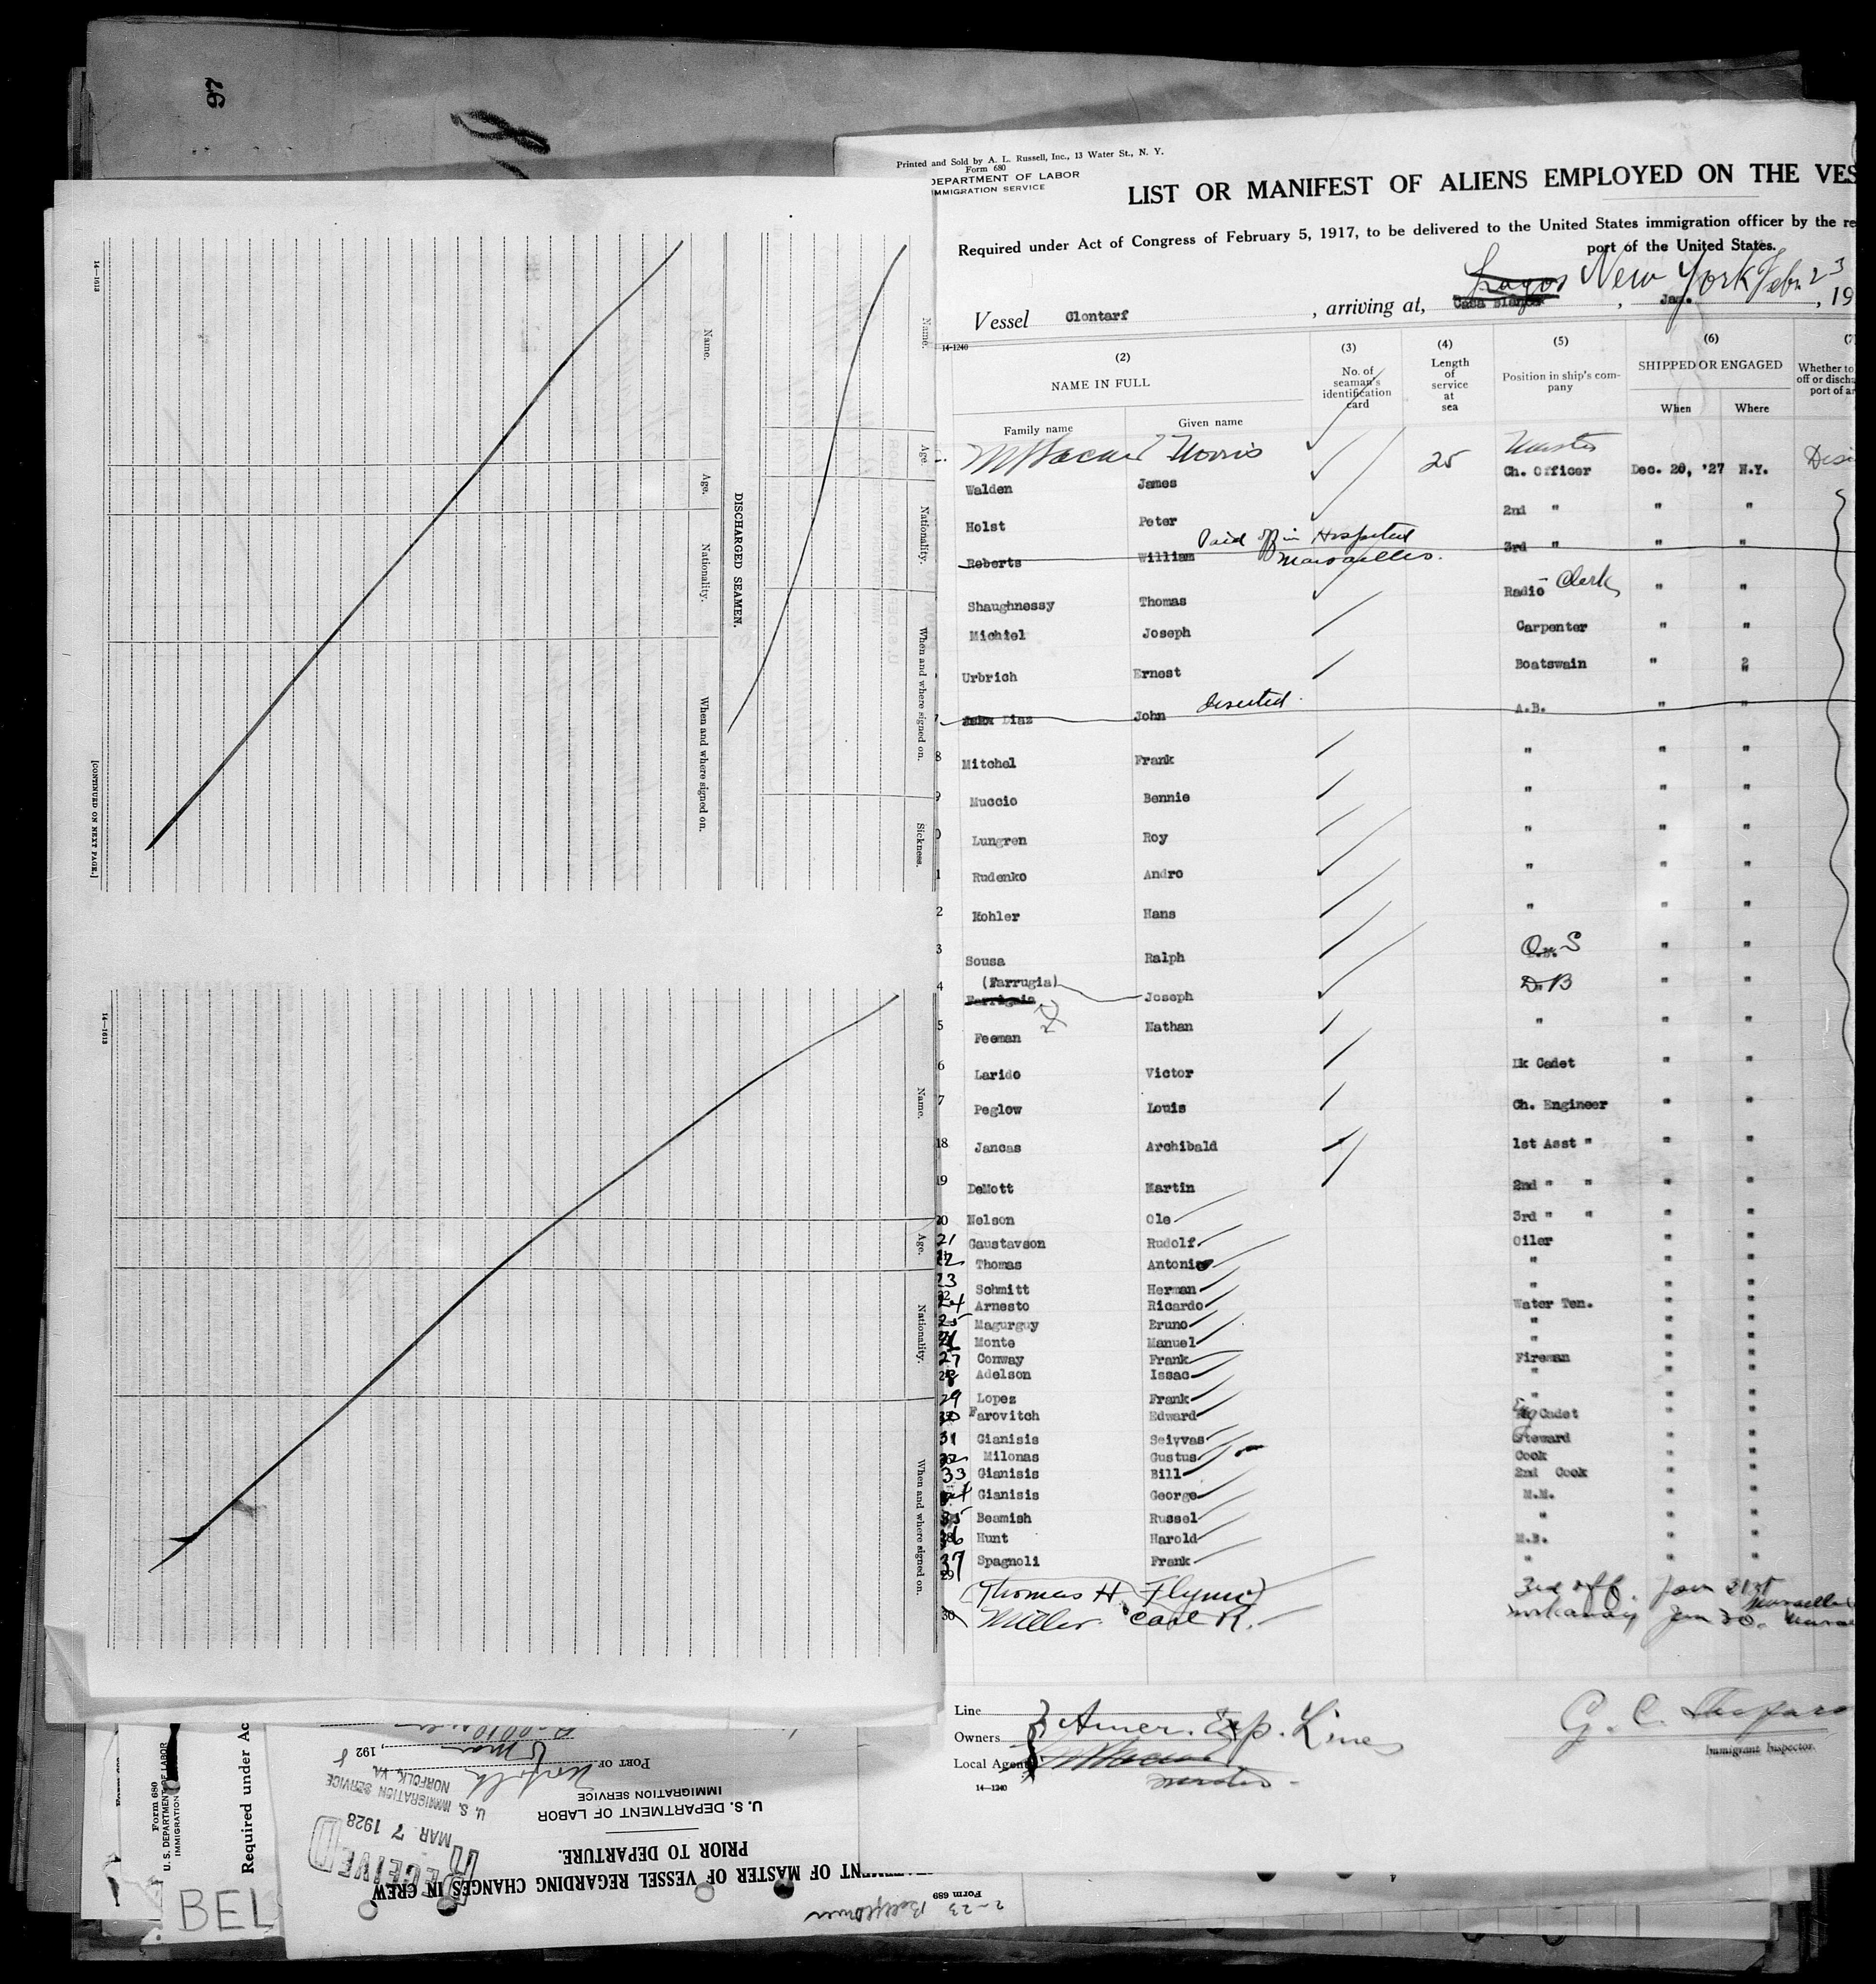 97
Printed and Sold by A. L. Russell, Inc., 13 Water St., N. Y.
Form 680
DEPARTMENT OF LABOR
IMMIGRATION SERVICE
LIST OR MANIFEST OF ALIENS EMPLOYED ON THE VES
Required under Act of Congress of February 5, 1917, to be delivered to the United States immigration officer by the re
port of the United States.
Vessel Clontarf , arriving at, New York Feb. 23 , Jan. , 19
14-1240
(2) (3) (4) (5) (6) (7
NAME IN FULL No. of seaman's identification card Length of service at sea Position in ship's company SHIPPED OR ENGAGED Whether to off or discha port of ar
Family name Given name When Where
Norris 25 Master
Walden James Ch. Officer Dec. 20, '27 N.Y.
Holst Peter 2nd " " "
Roberts William Paid off in Hospital Marseilles. 3rd " " "
Shaughnessy Thomas Radio Clerk " "
Michiel Joseph Carpenter " "
Urbrich Ernest Boatswain " "
7 Diaz John deserted. A.B. " "
8 Mitchel Frank " " "
9 Muccio Bennie " " "
0 Lungren Roy " " "
1 Rudenko Andro " " "
2 Kohler Hans " " "
3 Sousa Ralph O.S " "
(Farrugia)
4 Joseph D.B " "
5 Feeman Nathan " " "
6 Larido Victor Dk Cadet " "
7 Peglow Louis Ch. Engineer " "
18 Jancas Archibald 1st Asst " " "
19 DeMott Martin 2nd " " " "
20 Nelson Ole 3rd " " " "
21 Gaustavson Rudolf Oiler " "
22 Thomas Antonio " " "
23 Schmitt Herman " " "
24 Arnesto Ricardo Water Ten. " "
25 Magurguy Bruno " " "
26 Monte Manuel " " "
27 Conway Frank Fireman " "
28 Adelson Issac " " "
29 Lopez Frank " " "
30 Farovitch Edward Eng Cadet " "
31 Gianisis Seiyvas Steward " "
32 Milonas Gustus Cook " "
33 Gianisis Bill 2nd Cook " "
34 Gianisis George M.M. " "
35 Beamish Russel " " "
36 Hunt Harold M.B. " "
37 Spagnoli Frank " " "
29
(Thomas H. Flynn) 3rd off. Jan 31st Marseilles
30 Miller Carl R. workaway Jan 30.
Line
Owners Amer. Exp. Lines
Local Agents
Master
14-1240
G. C.
Immigrant Inspector.
14-1613
Name.
Age.
Nationality.
When and where signed on.
Sickness.
DISCHARGED SEAMEN.
Name.
Age.
Nationality.
When and where signed on.
[CONTINUED ON NEXT PAGE.]
14-1613
Name.
Age.
Nationality.
When and where signed on.
Form 680
U. S. DEPARTMENT OF LABOR
IMMIGRATION SERVICE
Required under Ac
BEL
2-23 Bellflower
Form 689
MENT OF MASTER OF VESSEL REGARDING CHANGES IN CREW
PRIOR TO DEPARTURE.
RECEIVED
MAR 7 1928
U. S. IMMIGRATION SERVICE
NORFOLK, VA.
U. S. DEPARTMENT OF LABOR
IMMIGRATION SERVICE
PORT OF Norfolk
6 Mar , 1928